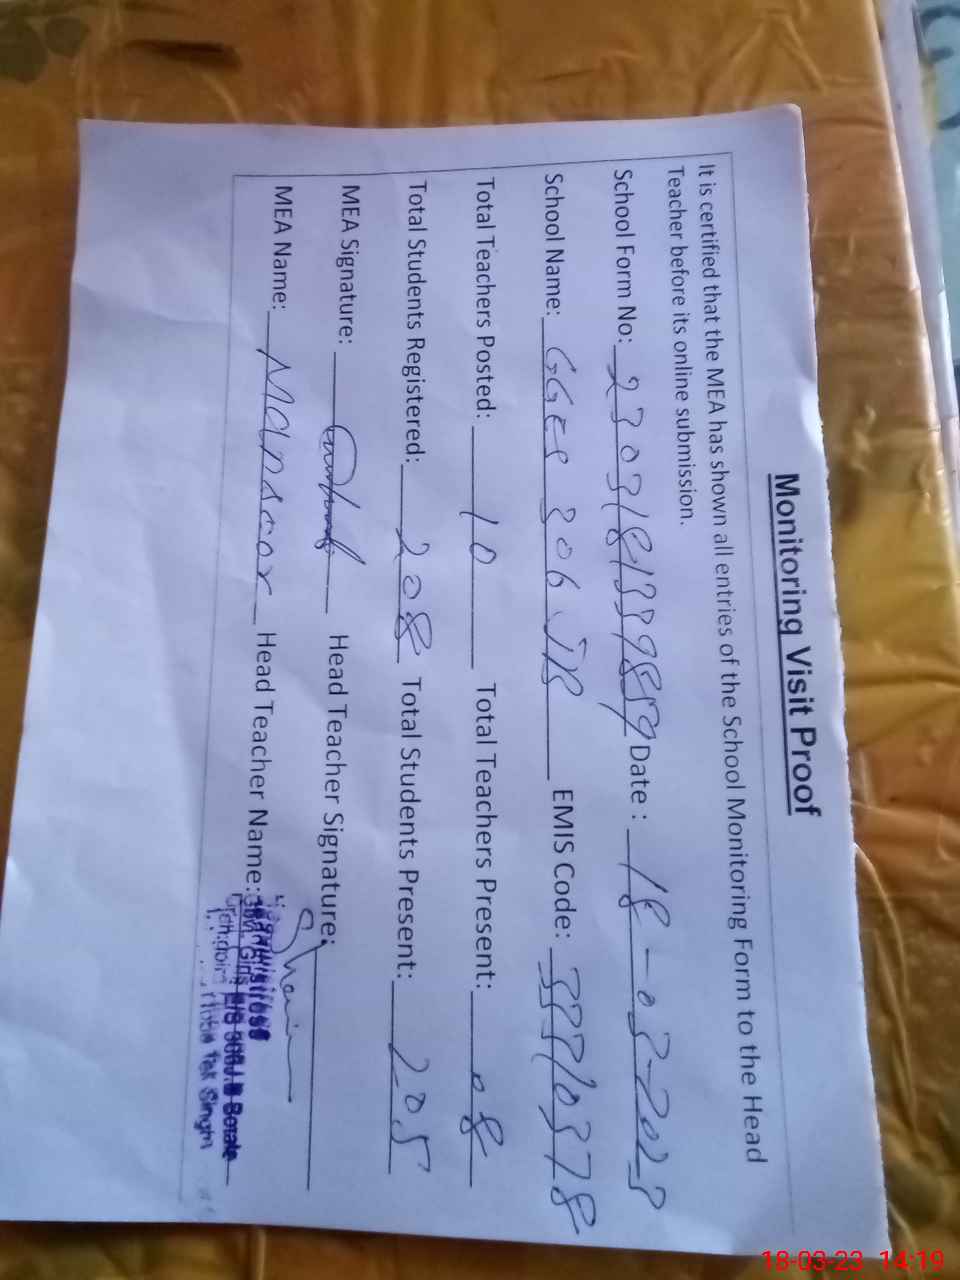 Monitoring Visit Proof
It is certified that the MEA has shown all entries of the School Monitoring Form to the Head
Teacher before its online submission.
School Form No: Date: 18-03-2023
School Name: GGES 306 JB EMIS Code: 33310378
Total Teachers Posted: 10 Total Teachers Present: 08
Total Students Registered: 208 Total Students Present: 205
MEA Signature: Head Teacher Signature:
MEA Name: Mansoor Head Teacher Name:
Headmistress
Govt. Girls E/S 306 J.B
Tek Singh
18-03-23 14:19